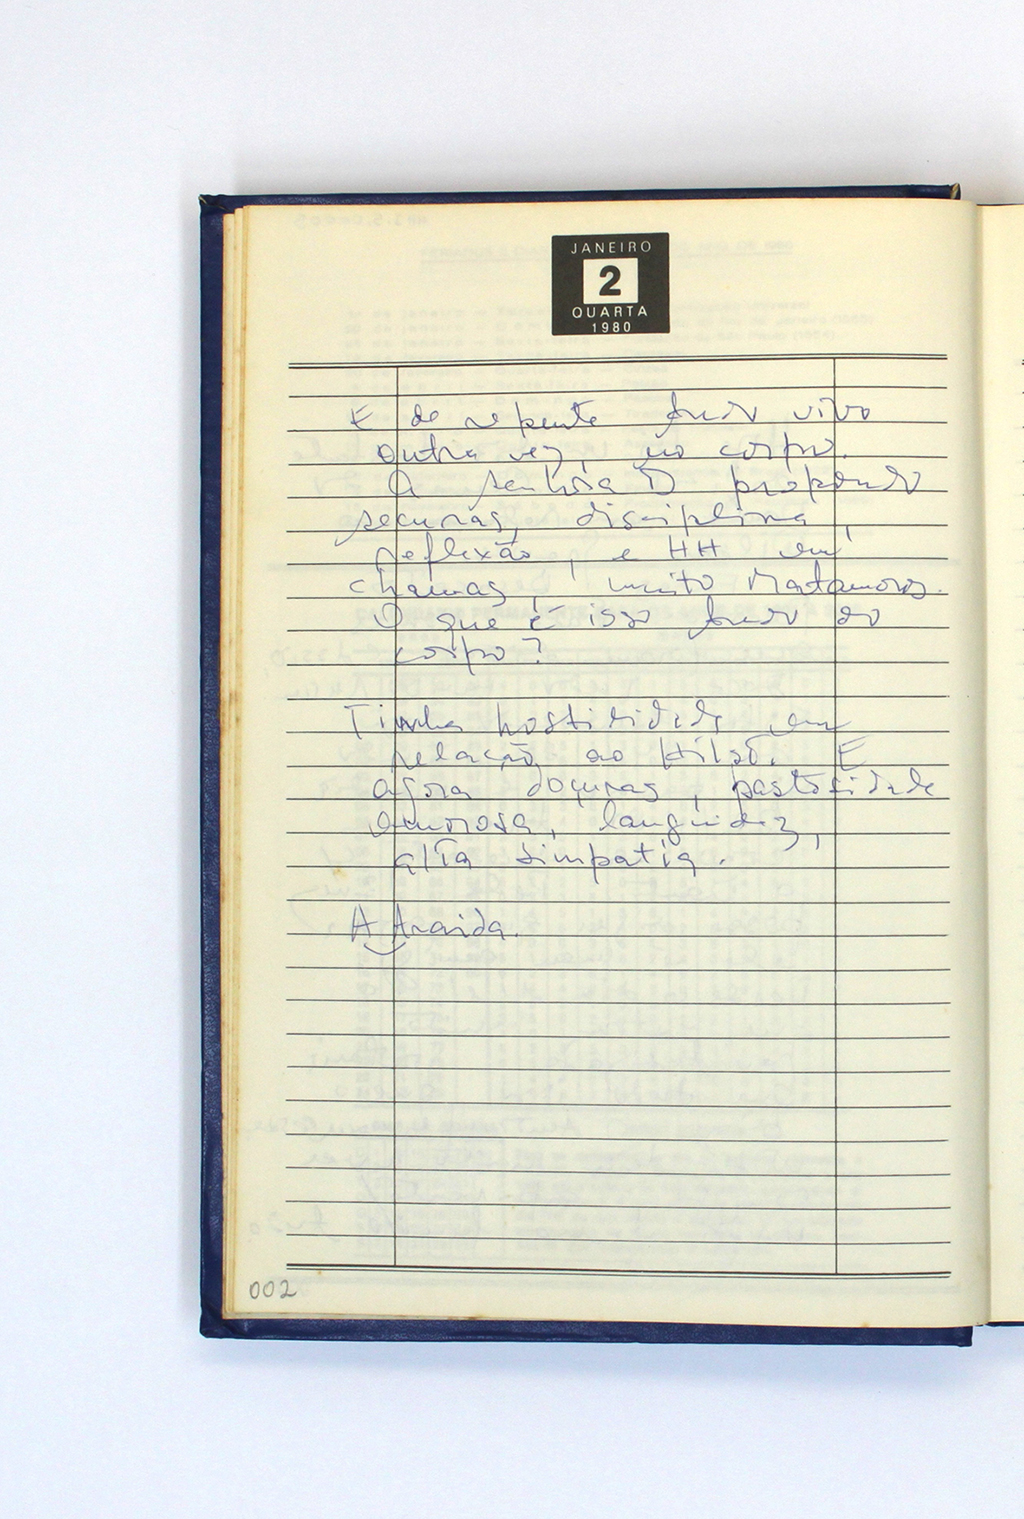 JANEIRO
2
QUARTA
1980
E de repente tudo vivo
outra vez, no corpo.
A senhora D propondo
securas, disciplina,
reflexão, e HH em
chamas, muito Matamoros.
O que é isso tudo do
corpo?
Tinha hostilidade em
relação ao Hilsó. E
agora doçuras, pastosidade
amorosa, languidez,
alta simpatia.
A
002